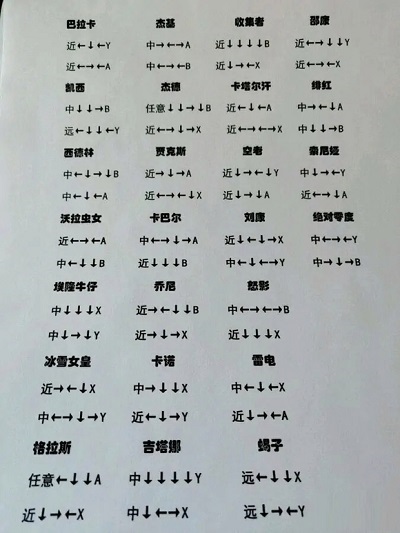 巴拉卡 杰基 收集者 邵康
近←↓←Y 中→←→A 近↓↓↓↓B 近←→↓↓Y
近←→←A 中←→←B 近↓→←X 近→←→←X
凯西 杰德 卡塔尔汗 绯红
中↓↓→B 任意↓↓→↓B 近←↓←A 中→←↓A
远←↓↓←Y 近←→↓→X 近←→←→X 中↓→↓B
西德林 贾克斯 空者 索尼娅
中←↓→↓B 近→↓→A 近↓→←↓Y 中↓→←Y
中←↓←A 近←→←↓X 近↓→↓A 近↓→↓A
沃拉虫女 卡巴尔 刘康 绝对零度
近←→←A 中←→↓→A 近↓←↓→X 中←→←Y
中←↓↓B 近↓↓↓B 中←↓←→Y 中→↓→B
埃隆牛仔 乔尼 怒影
中↓↓↓X 近→←↓↓B 中←→←→B
中↓→↓Y 近←→↓X 近↓↓↓X
冰雪女皇 卡诺 雷电
近→←↓X 中→↓↓X 中←↓←X
中←→↓→Y 近↓←→Y 近↓→←A
格拉斯 吉塔娜 蝎子
任意←↓↓A 中↓↓↓↓Y 远←↓↓X
近↓→←X 中↓←→X 远↓→←Y